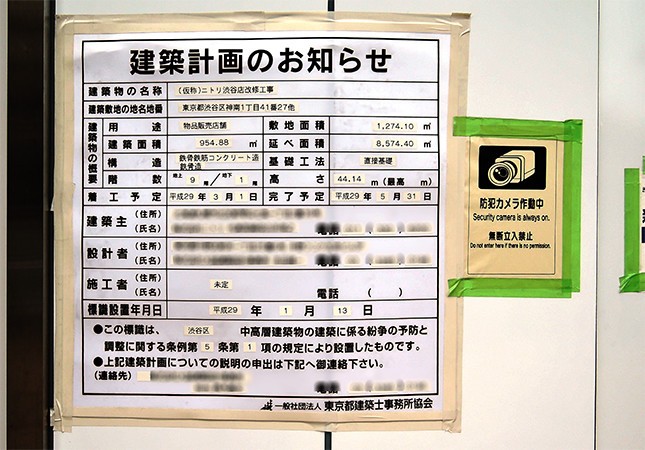 建築計画のお知らせ
建築物の名称 (仮称)ニトリ渋谷店改修工事
建築敷地の地名地番 東京都渋谷区神南1丁目41番27他
建築物の概要
用途 物品販売店舗 敷地面積 1,274.10 ㎡
建築面積 954.88 ㎡ 延べ面積 8,574.40 ㎡
構造 鉄骨鉄筋コンクリート造 鉄骨造 基礎工法 直接基礎
階数 地上 9 階/地下 1 階 高さ 44.14 m(最高 m)
着工予定 平成29年3月1日 完了予定 平成29年5月31日
建築主 (住所)
(氏名) 電話
設計者 (住所)
(氏名) 電話
施工者 (住所) 未定
(氏名) 電話 ( )
標識設置年月日 平成29 年 1 月 13 日
●この標識は、 渋谷区 中高層建築物の建築に係る紛争の予防と
調整に関する条例第 5 条第 1 項の規定により設置したものです。
●上記建築計画についての説明の申出は下記へ御連絡下さい。
(連絡先) 電話
一般社団法人 東京都建築士事務所協会
防犯カメラ作動中
Security camera is always on.
無断立入禁止
Do not enter here if there is no permission.